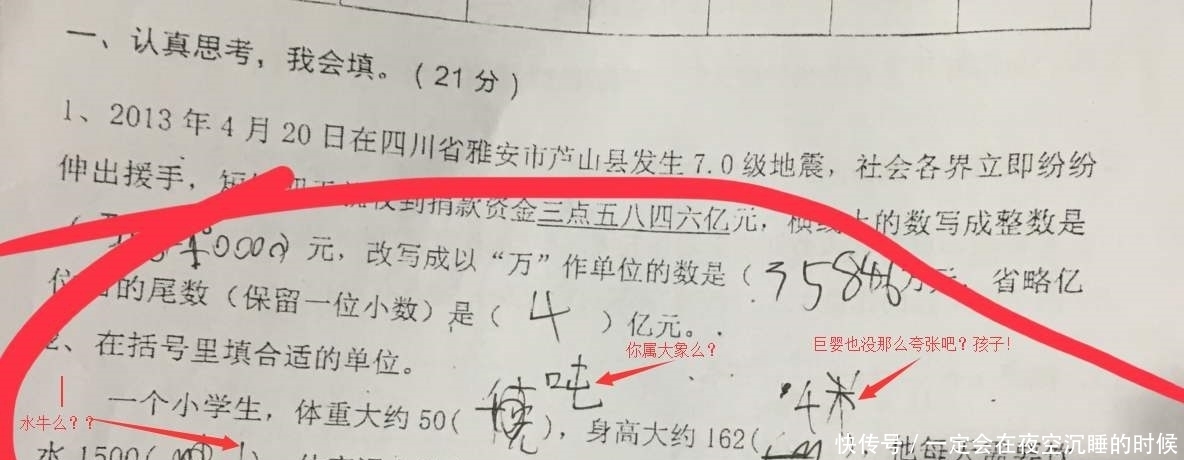 一、认真思考，我会填。（21分）
1、2013年4月20日在四川省雅安市芦山县发生7.0级地震，社会各界立即纷纷
伸出援手，收到捐款资金三点五八四六亿元，横线上的数写成整数是
（0000）元，改写成以“万”作单位的数是（35846万元，省略亿
位后的尾数（保留一位小数）是（4）亿元。
2、在括号里填合适的单位。
你属大象么？
巨婴也没那么夸张吧？孩子！
吨
米
一个小学生，体重大约50(），身高大约162(
水牛么？？
水1500(
快传号/一定会在夜空沉睡的时候